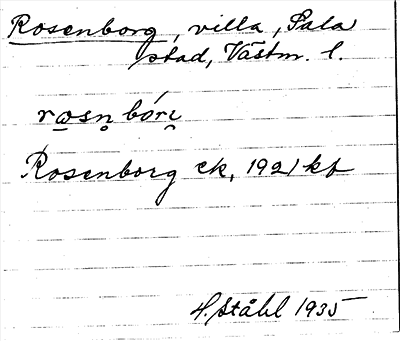 Rosenborg, villa, Sala
stad, Västm. l.
rosn bóri
Rosenborg ek, 1921 kb
H. Ståhl 1935